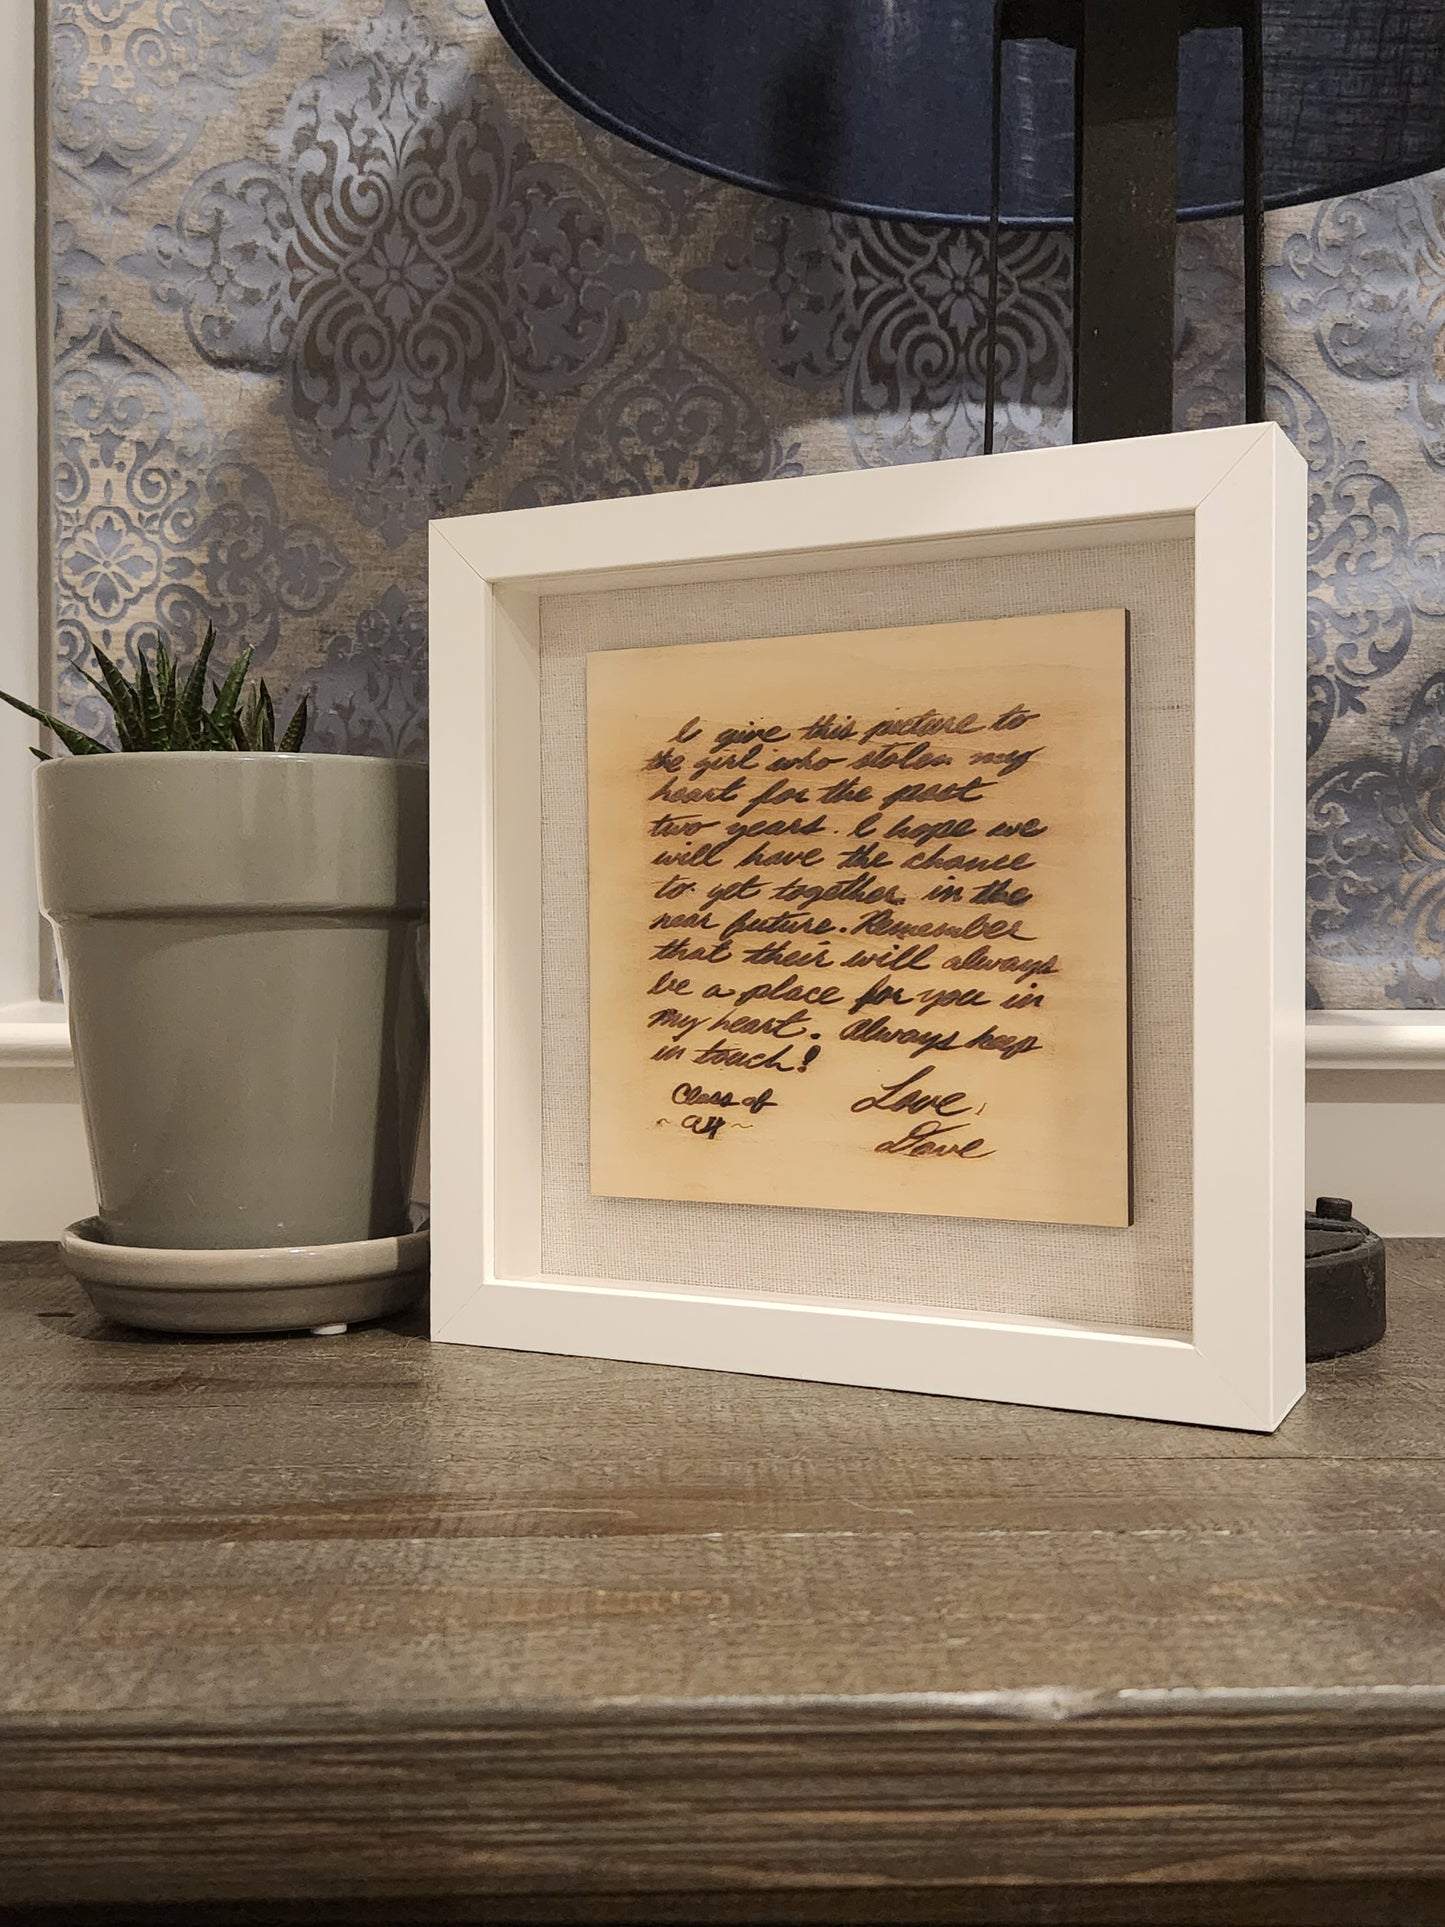 I give this picture to
the girl who stolen my
heart for the past
two years. I hope we
will have the chance
to get together in the
near future. Remember
that their will always
be a place for you in
my heart. Always keep
in touch!
Class of
~ 94 ~
Love,
Dave